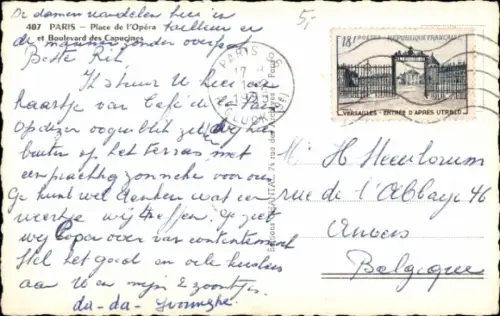 De damen wandelen hier in
tailleur en
de mannen zonder overjas
407 PARIS - Place de l'Opéra
et Boulevard des Capucines
Beste Rik
Ik stuur U hier een
kaartje van Café de la Paix
Op dezen oogenblik zitten wij hier
buiten op het terras met
een prachtig zonneke voor ons
Ge kunt wel denken wat een
weertje wij treffen. Ge ziet
wij lopen over van contentement
Stel het goed en vele kussen
aan U en mijn 2 zoontjes.
da-da-
Editions CHANTAL, 74 rue des Archives
PARIS
18f POSTES REPUBLIQUE FRANÇAISE
VERSAILLES - ENTRÉE D'APRÈS UTRILLO
5,-
H
rue de l'Abbaye 46
Anvers
Belgique